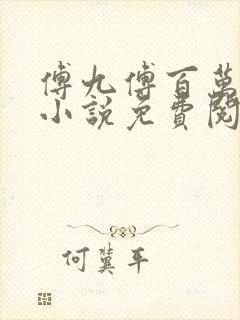 傅九傅百萬
小說免費閱
何冀平